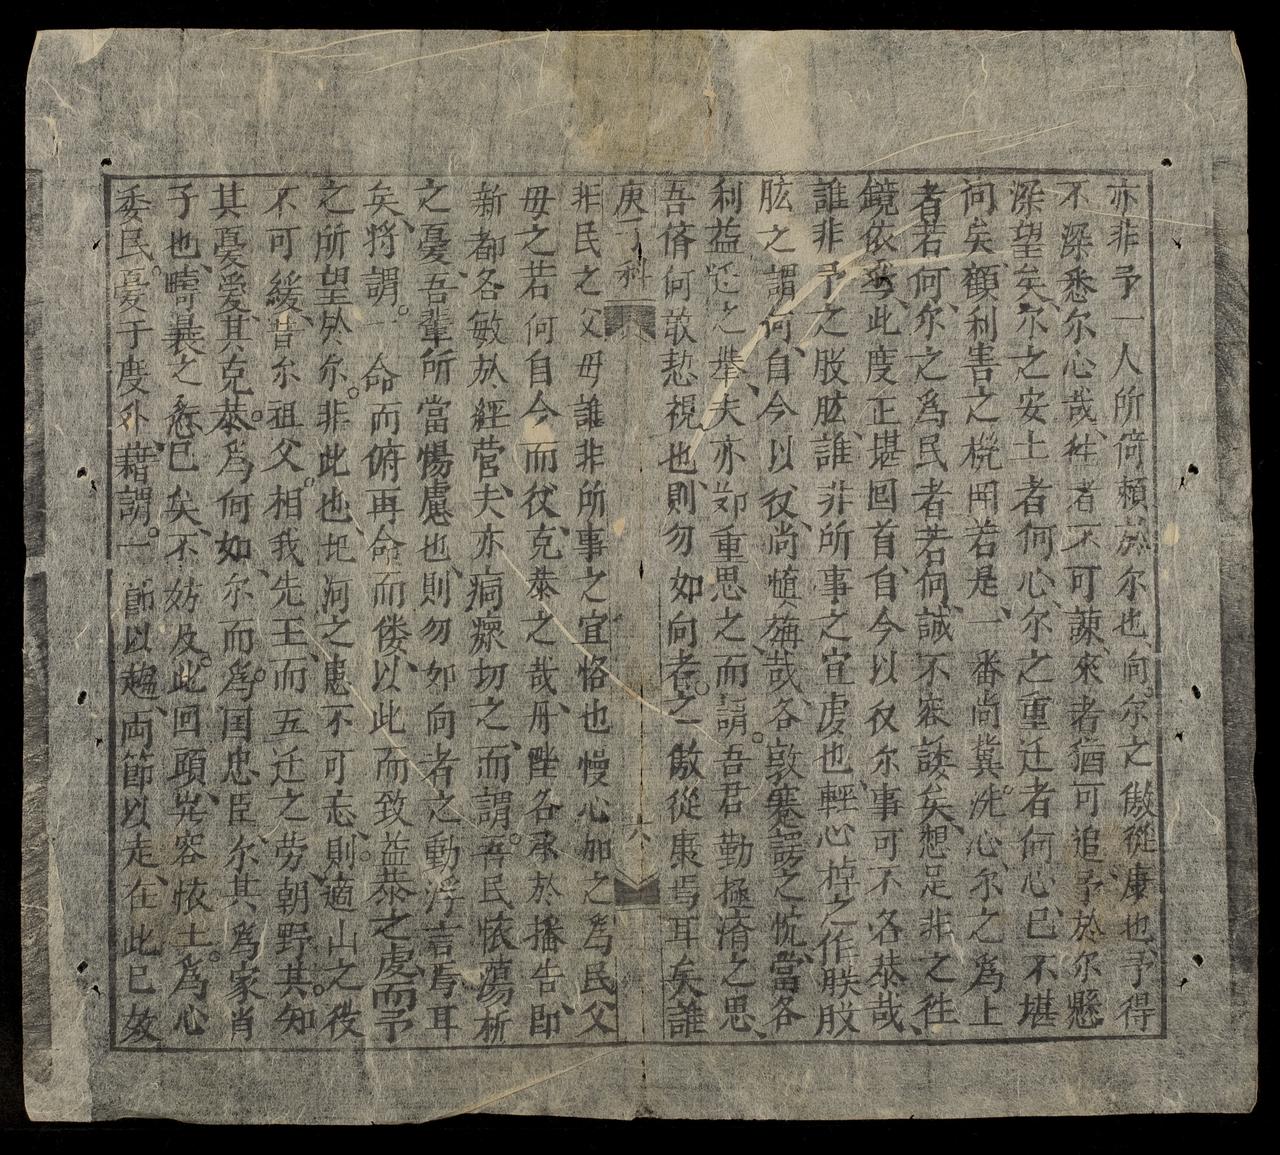 亦非予一人所倚賴於尔也向尔之傲從康也予得
不深悉尔心哉往者不可諫來者猶可追予於尔懸
深望矣尔之安土者何心尔之重迁者何心已不堪
问矣顧利害之機固若是一番尚冀洗心尔之爲上
者若何尔之爲民者若何誠不容諉矣想足非之往
鏡依乎此度正堪回首自今以後尔事可不各恭哉
誰非予之股肱誰非所事之宜虔也輕心掉之作朕股
肱之謂何自今以後尚慎旃哉各敦蹇諤之忱當各
利益迁之舉夫亦郑重思之而謂吾君勤極濟之思
吾儕何敢愸視也則勿如向者之傲從康焉耳矣誰
庚子科
六
非民之父母誰非所事之宜恪也慢心加之爲民父
毋之若何自今而後克恭之哉丹陛各承於播告即
新都各敏於經营夫亦痌瘝切之而謂吾民依蕩析
之憂吾輩所當惕慮也則勿如向者之動浮言焉耳
矣將謂一命而俯再命而僂以此而致益恭之虔而予
之所望於尔非此也圯河之患不可忘則適山之役
不可緩昔尔祖父相我先王而五迁之劳朝野其知
其憂爱其克恭爲何如尔而爲国忠臣尔其爲家肖
子也疇曩之愆已矣不妨及此回頭㒵容怀土爲心
委民憂于度外藉謂一節以趨両節以走在此已效